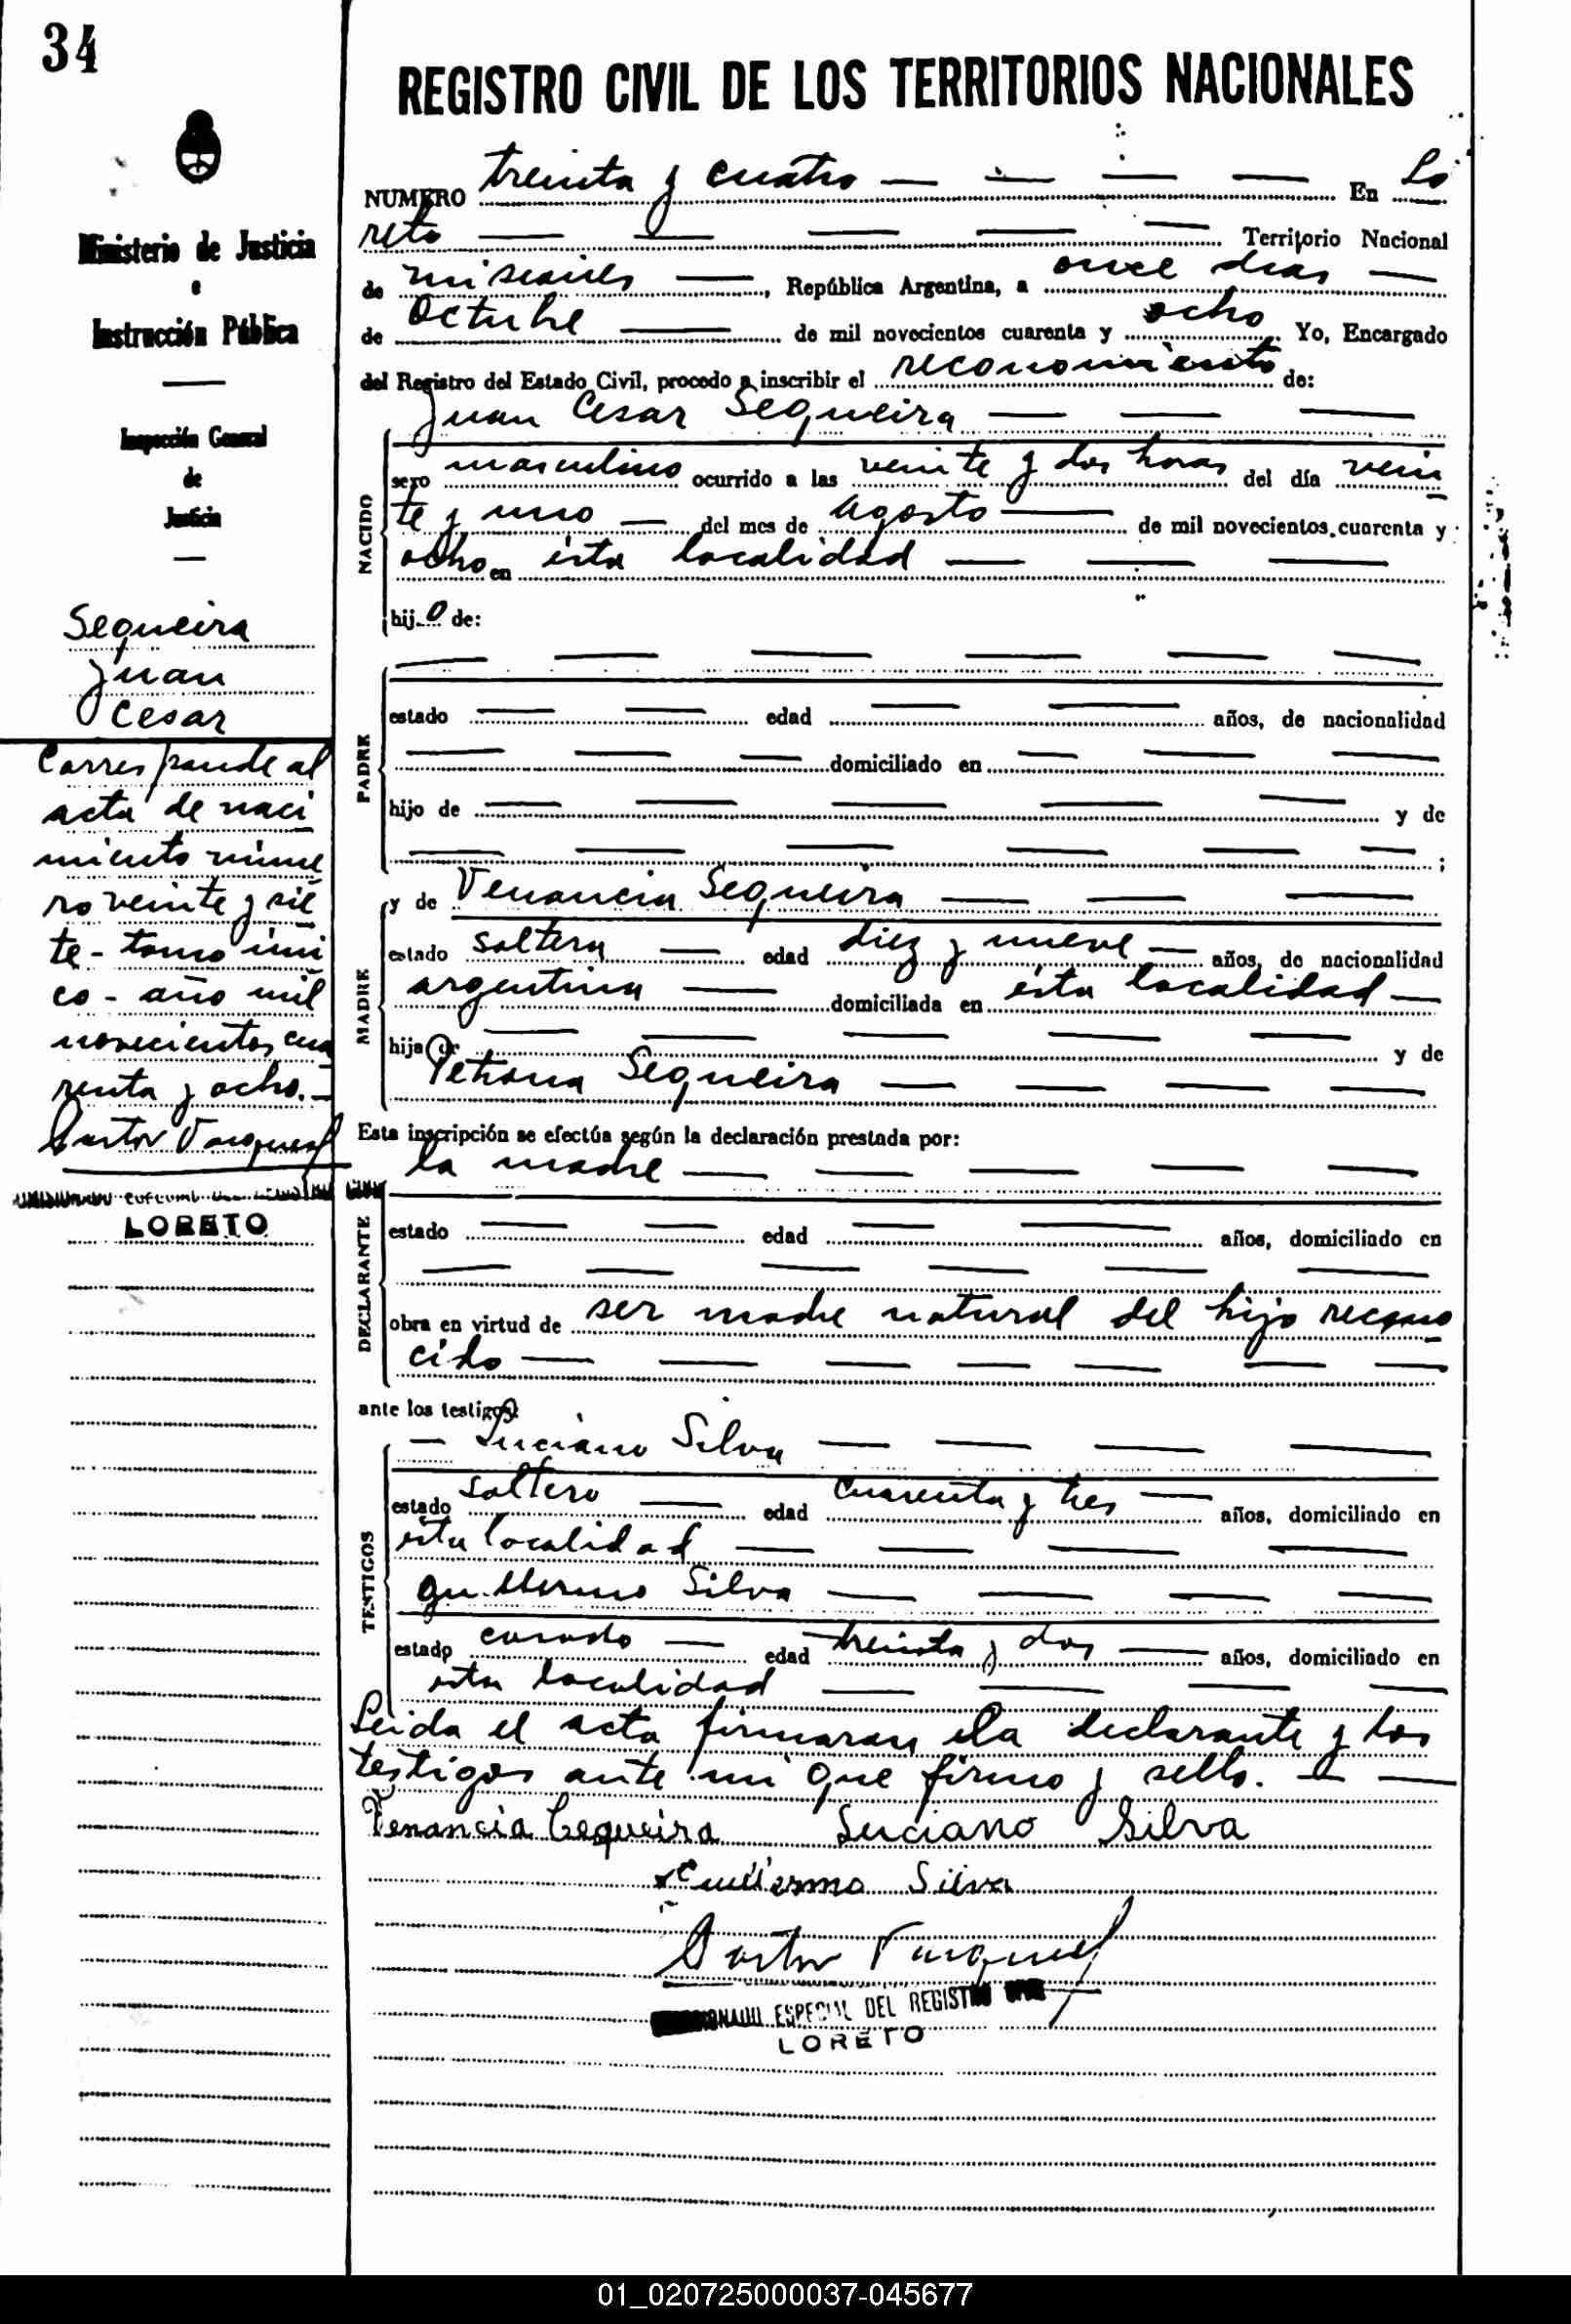 34
Ministerio de Justicia
e
Instrucción Pública
Inspección General
de
Justicia
Sequeira
Juan
Cesar
Corresponde al
acta de naci
miento núme
ro veinte y sie
te - tomo úni
co - año mil
novecientos cua
renta y ocho.-
LORETO
REGISTRO CIVIL DE LOS TERRITORIOS NACIONALES
NUMERO treinta y cuatro — — — — En Lo
reto — — — — — Territorio Nacional
de misiones —, República Argentina, a once dias —
de Octubre — de mil novecientos cuarenta y ocho Yo, Encargado
del Registro del Estado Civil, procedo a inscribir el reconomiento de:
Juan Cesar Sequeira — — —
NACIDO
sexo masculino ocurrido a las veinte y dos horas del día vein
te y uno — del mes de Agosto — de mil novecientos cuarenta y
ocho en ésta localidad — — —
hijo de:
PADRE
— — — — — —
estado — — edad — — años, de nacionalidad
— — — domiciliado en — — —
hijo de — — — — — y de
— — — — — — ;
MADRE
y de Venancia Sequeira — — —
estado soltera — edad diez y nueve — años, de nacionalidad
argentina — domiciliada en ésta localidad —
hija de — — — — — y de
Petrona Sequeira — — — —
Esta inscripción se efectúa según la declaración prestada por:
la madre — — — — —
DECLARANTE
estado — — edad — — años, domiciliado en
— — — — — —
obra en virtud de ser madre natural del hijo recono
cido — — — — — — —
ante los testigos:
TESTIGOS
— Luciano Silva — — — —
estado soltero — edad cuarenta y tres — años, domiciliado en
ésta localidad — — — —
Guillermo Silva — — — —
estado casado — edad treinta y dos — años, domiciliado en
ésta localidad — — — —
Leida el acta firmaran la declarante y los
testigos ante mi que firmo y sello. — —
Venancia Cequeira Luciano Silva
Guillermo Silva
ESPECIAL DEL REGISTRO CIVIL
LORETO
01_020725000037-045677